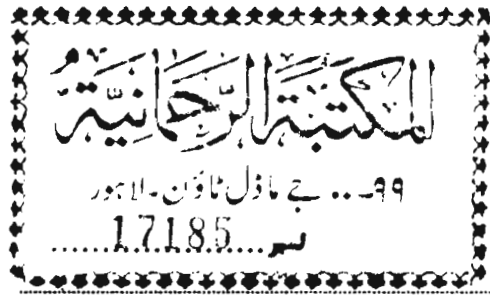 المكتبة الرحمانية
۹۹۔۔۔ جے ماڈل ٹاؤن۔ لاہور
نمبر....17185......